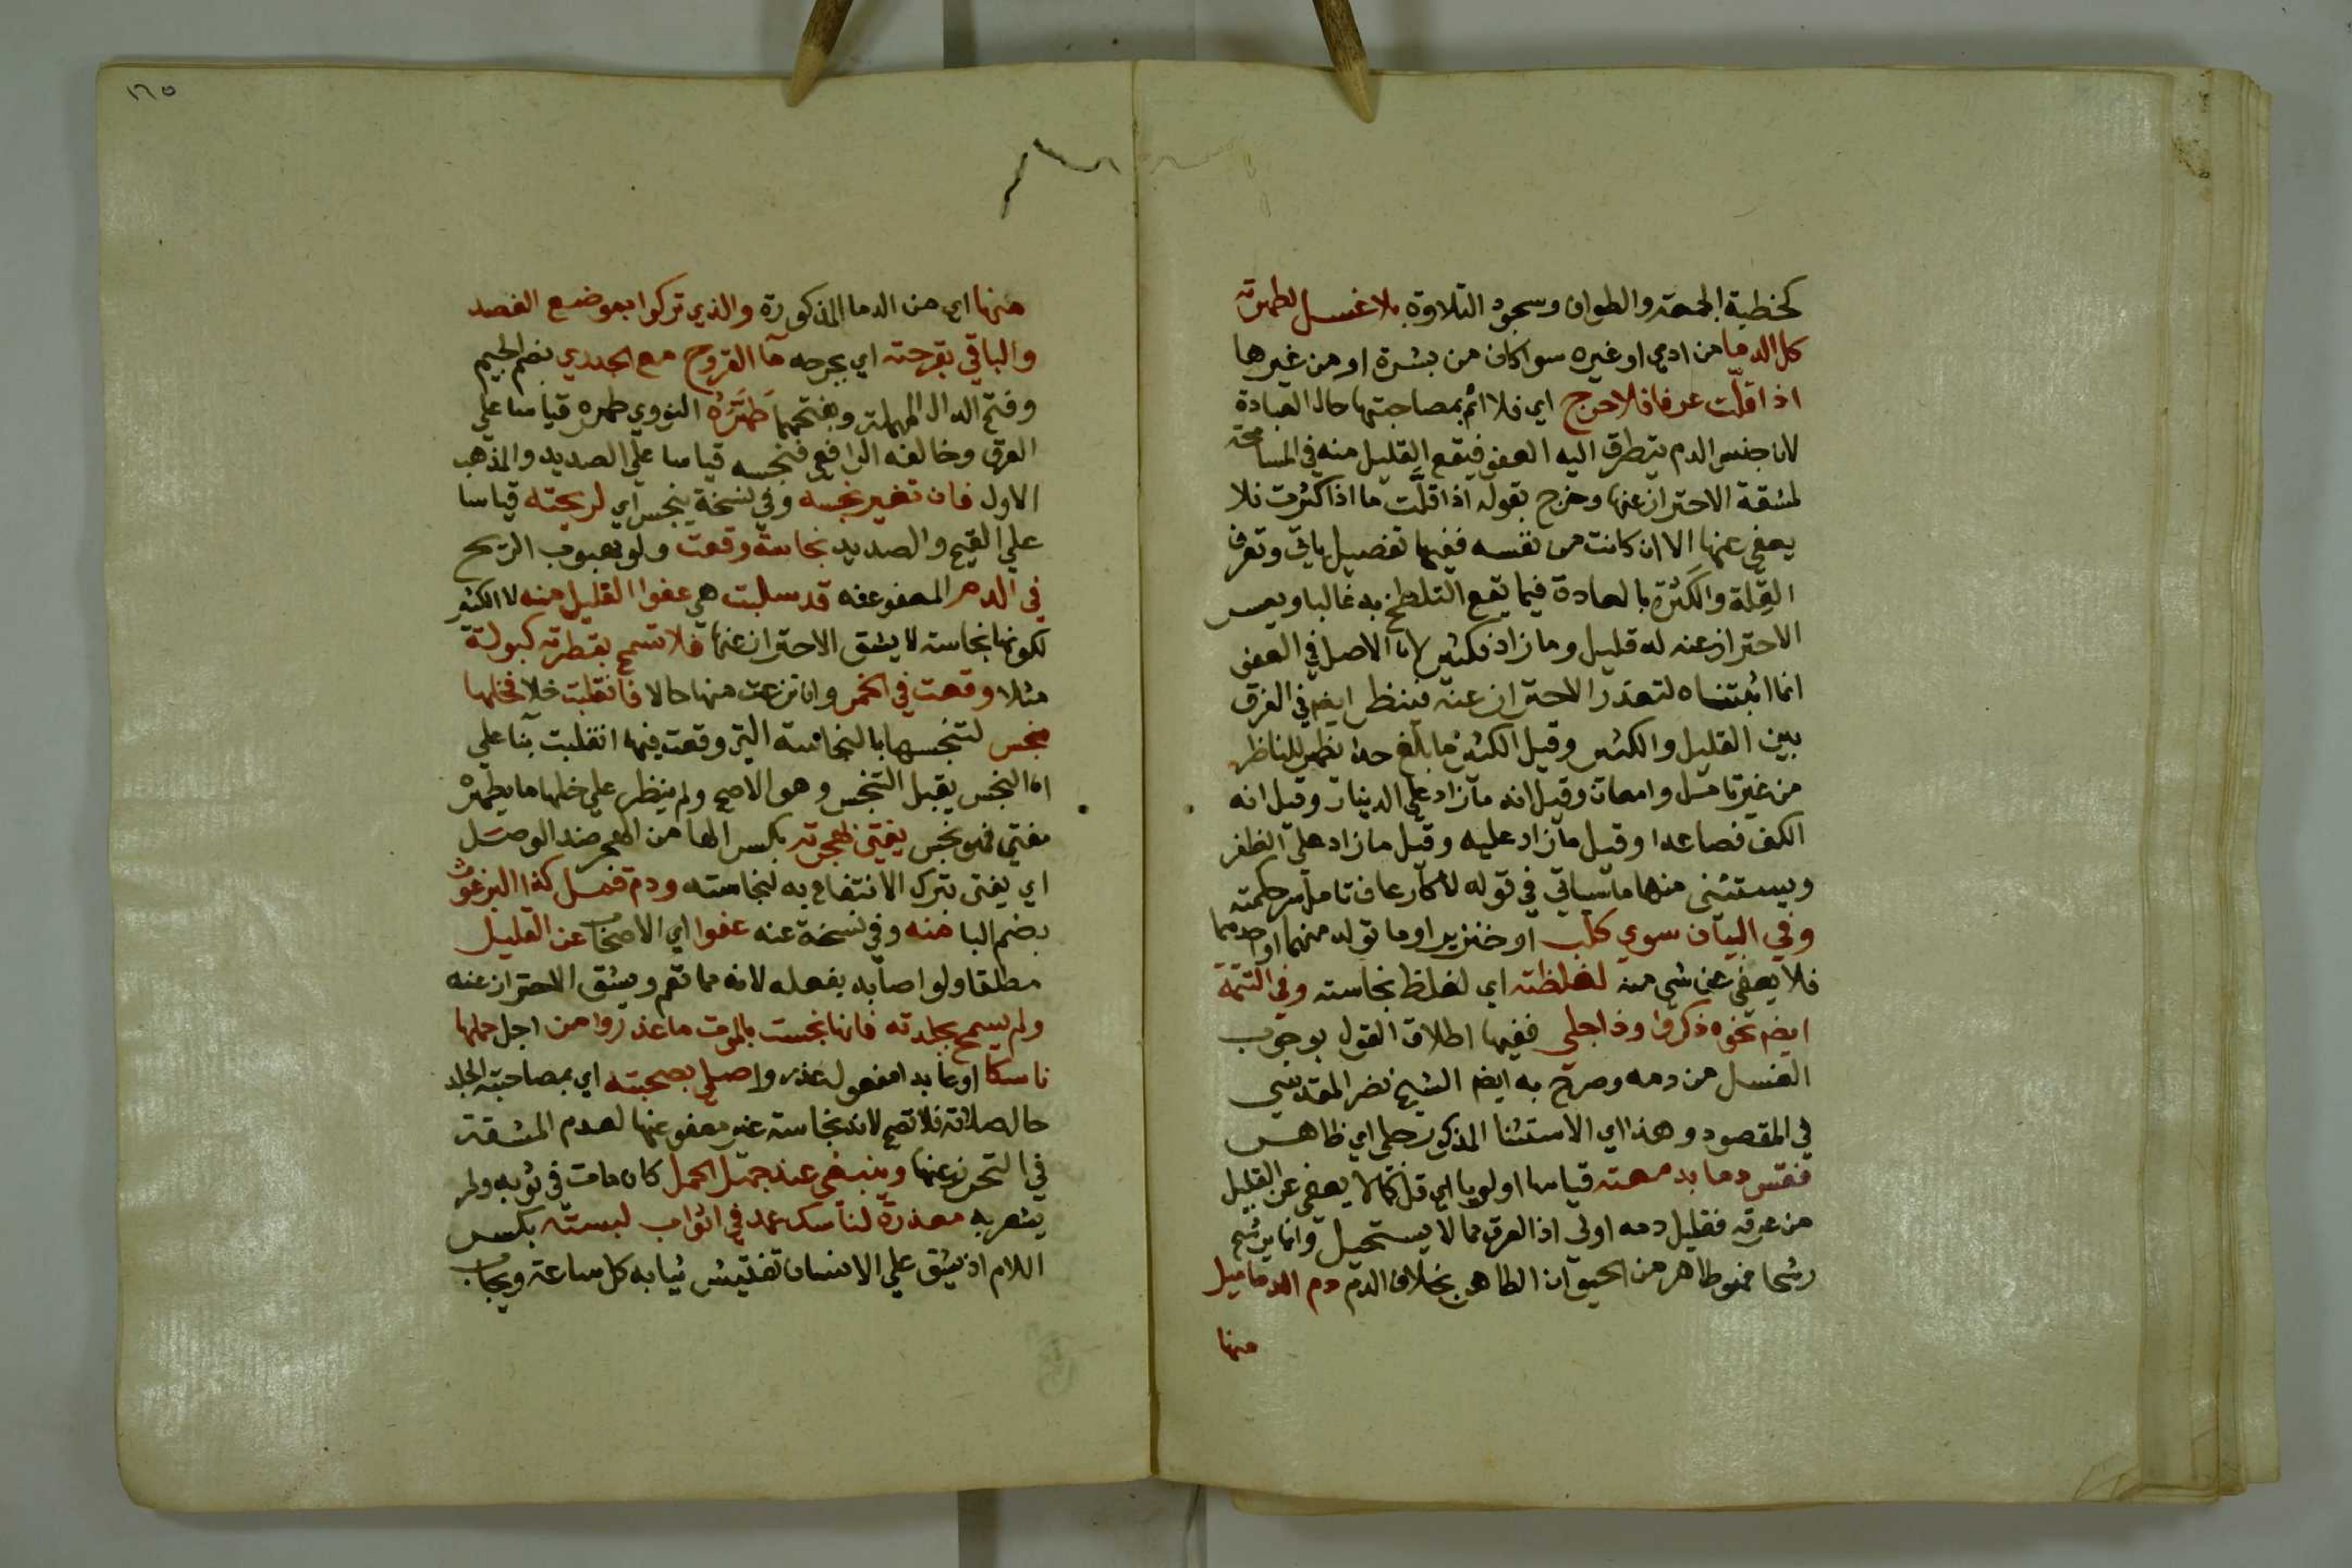 كخطبة الجمعة والطواف وسجود التلاوة بلا غسل لطهرته
كل الدما من ادمي او غيره سوا كان من بشرة او من غيرها
اذا قلّت عرفا فلا حرج اي فلا اثم بمصاحبتها حال العبادة
لان جنس الدم يتطرق اليه العفو فيقع القليل منه في المسامحة
لمشقة الاحتراز عنها وخرج بقوله اذا قلّت ما اذا كثرت فلا
يعفى عنها الا ان كانت من نفسه ففيها تفصيل ياتي وتعرف
القِلة والكَثرة بالعادة فيما يقع التلطخ به غالبا ويعسر
الاحتراز عنه له قليل وما زاد فكثير لان الاصل في العفو
انما اثبتناه لتعذر الاحتراز عنه فينظر ايضم في الفرق
بين القليل والكثير وقيل الكثير ما بلغ حدا يظهر للناظر
من غير تامل وامعان وقيل انه ما زاد علي الدينار وقيل انه
الكف فصاعدا وقيل ما زاد عليه وقيل ما زاد علي الظفر
ويستثنى منها ما سياتي في قوله لا كالرعاف تامل سر حكمته
وفي البيان سوي كلب او خنزير او ما تولد منهما او احدهما
فلا يعفي عن شي منه لغلظته اي لغلظ نجاسته وفي التتمة
ايضم نحوه ذكروا وذا جلي ففيها اطلاق القول بوجوب
الغسل من دمه وصرح به ايضم الشيخ نصر المقدسي
في المقصود وهذا اي الاستثنا المذكور جلي اي ظاهر
فقس دما بدمعته قياسا اولويا اي قل كما لا يعفي عن القليل
من عرقه فقليل دمه اولى اذ العرق مما لا يستحيل وانما يرشح
رشحا فهو طاهر من الحيوان الطاهر بخلاف الدم دم الدماميل
منها
١٦٥
منها اي من الدما المذكورة والذي تركوا بموضع الفصد
والباقي بقرحته اي بجرحه ما القروح مع الجدري بضم الجيم
وفتح الدال المهملة وبفتحهما طَهَّرَهُ النووي طهره قياسا علي
العرق وخالفه الرافعي فنجسه قياسا علي الصديد والمذهب
الاول فان تغير نجسه وفي نسخة ينجس اي لريحته قياسا
علي القيح والصديد نجاسة وقعت ولو بهبوب الريح
في الدم المعفو عنه قد سلبت هي عفوا القليل منه لا الكثير
لكونها نجاسة لا يشق الاحتراز عنها فلا تسمح بقطرته كبولة
مثلا وقعت في الخمر وان نزعت منها حالا فانقلبت خلا فخلها
نجس لتنجسها بالنجاسة التي وقعت فيها انقلبت بنا علي
ان النجس يقبل التنجس وهو الاصح ولم ينظر علي خلها ما يطهره
مفتي فهو نجس يفتي لهجرته بكسر الها من الهجر ضد الوصل
اي يفتى بترك الانتفاع به لنجاسته ودم قمل كذا البرغوث
بضم البا منه وفي نسخة عنه عفوا اي الاصحاب عن القليل
مطلقا ولو اصابه بفعله لانه مما تعم ويشق الاحتراز عنه
ولم يسمح بجلدته فانها نجست بالموت ما عذروا من اجل حملها
ناسكا او عابدا مفعول عذروا صلي بصحبته اي بمصاحبته الجلد
حال صلاته فلا تصح لانه نجاسة غير معفو عنها لعدم المشقة
في التحرز عنها وينبغي عند جهل الحمل كان مات في ثوبه ولم
يشعر به معذرة لناسك عمد في اثواب لبسته بكسر
اللام اذ يشق علي الانسان تفتيش ثيابه كل ساعة ويجاب